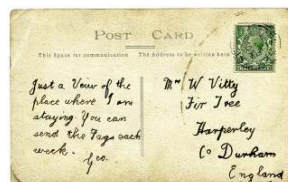 POST CARD
This Space for communication The Address to be written here
Just a View of the
place where I am
staying. You can
send the Fags each
week.
Geo.
Mr W Vitty
Fir Tree
Harperley
Co Durham
England